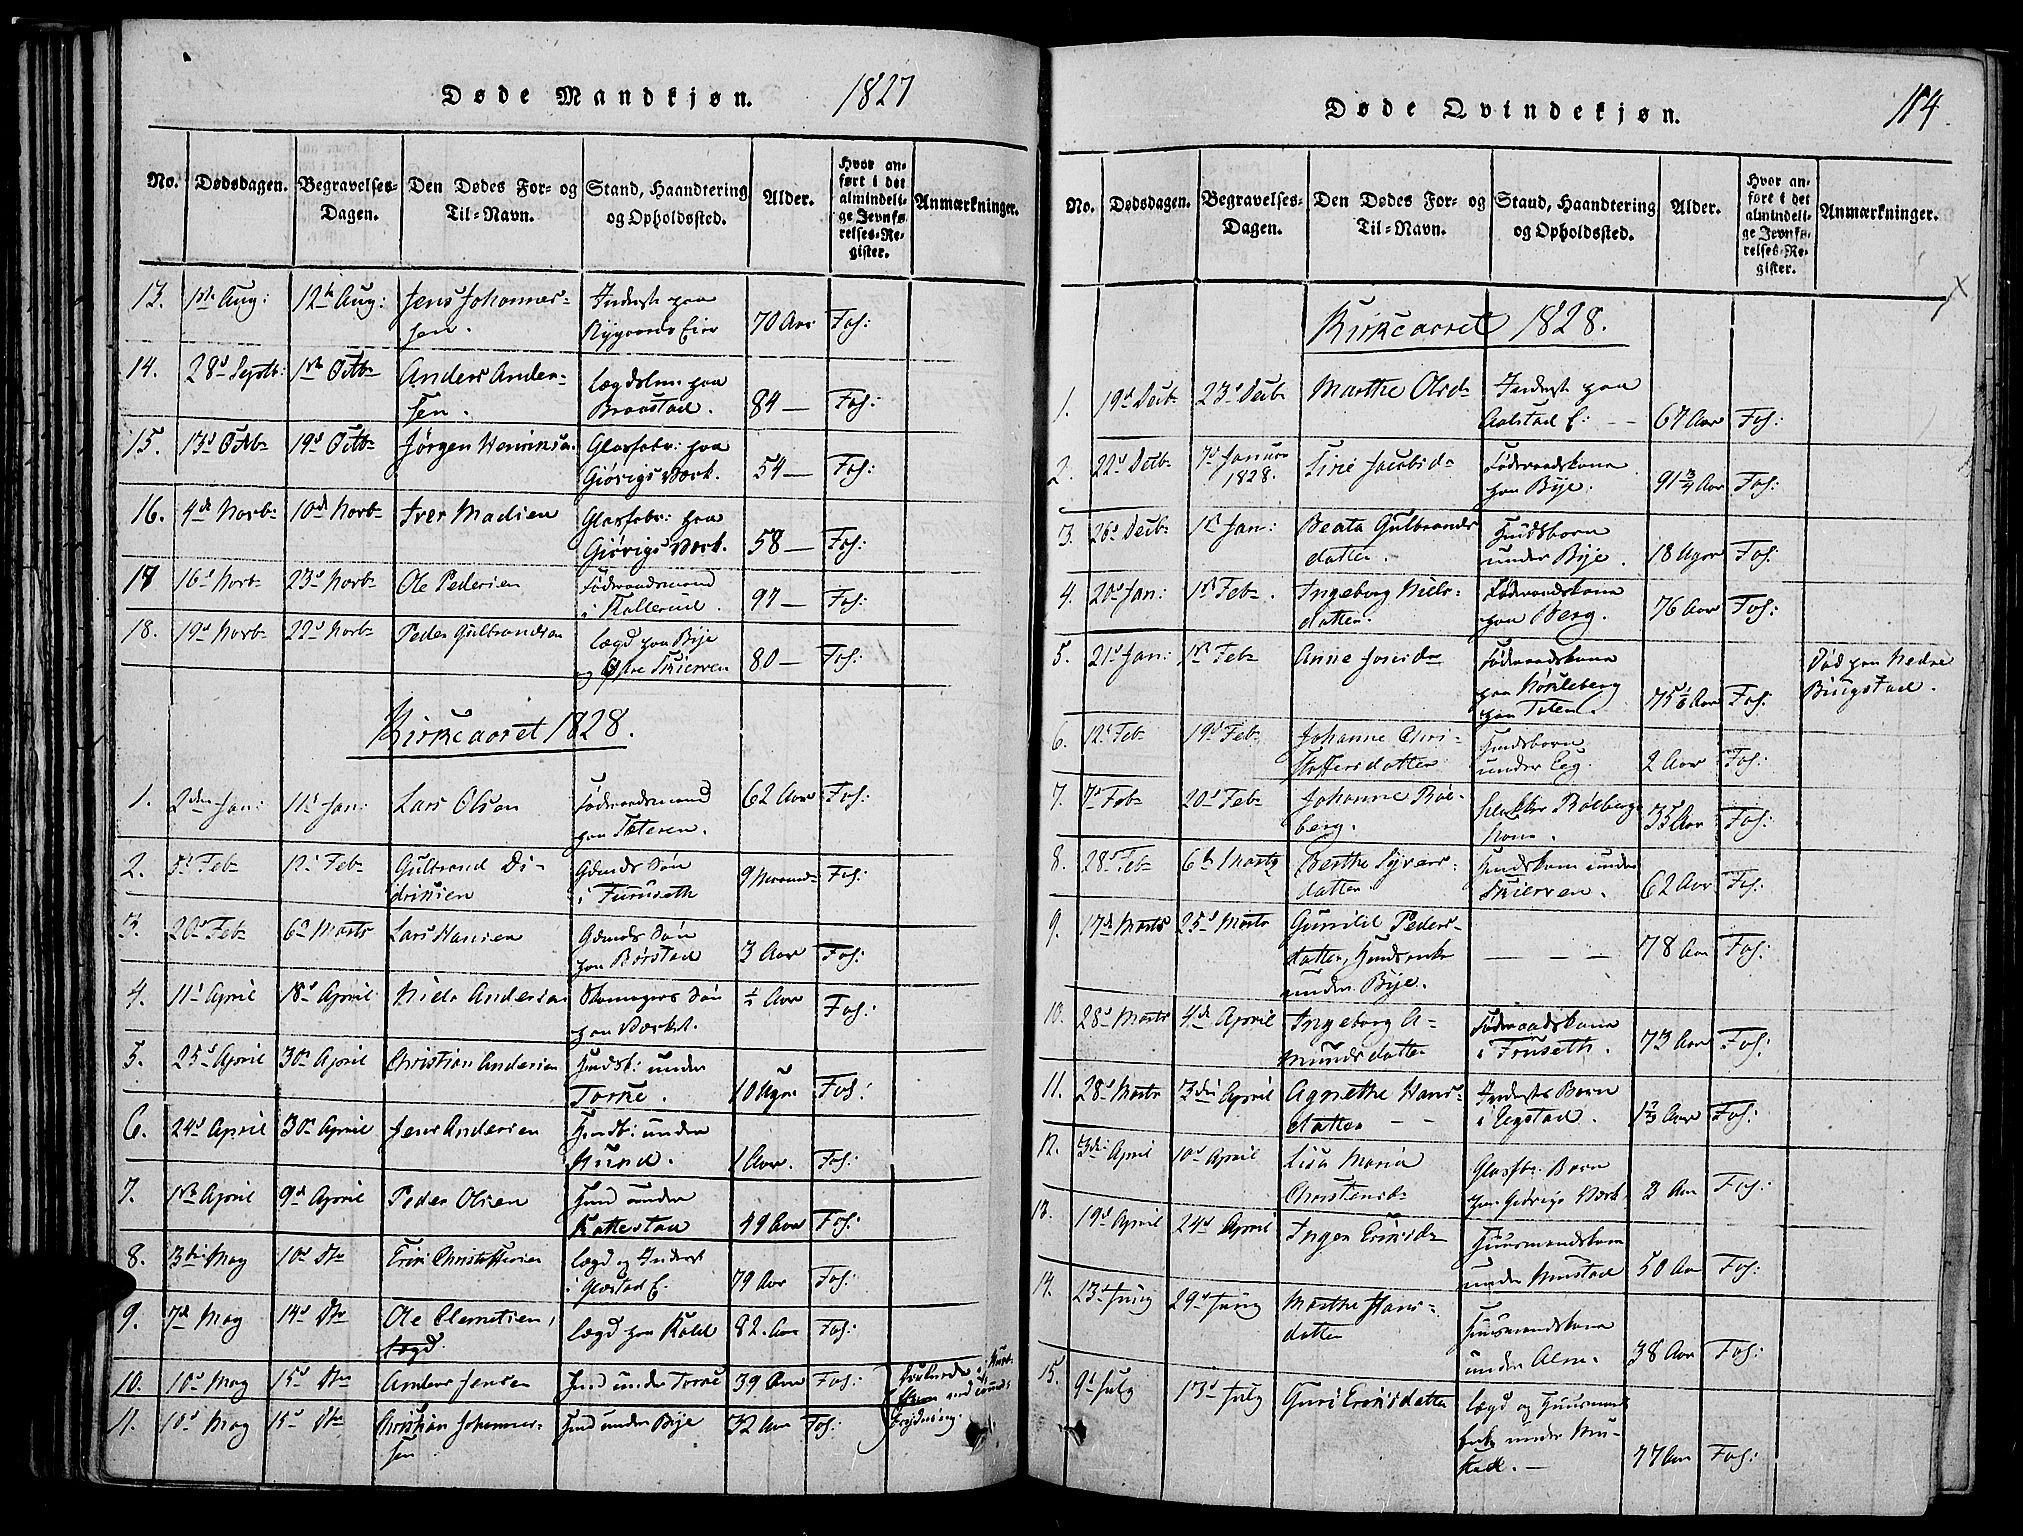 Døde Mandkjøn. 1827
No. Dødsdagen. Begravelses-Dagen. Den Dødes For- og Til-Navn. Stand, Haandtering og Opholdssted. Alder. Hvor anført i det almindelige Jevnførelses-Register. Anmærkninger.
13. 1ste Aug: 12te Aug: Jens Johannessen. Inderst paa Eier 70 Aar Fol:
14. 28d Septb: 1ste Octb Anders Andersen. Lægdslem paa Braastad. 84 — Fol:
15. 13d Octb 19d Octb Jørgen Henriksen Glasfabr: paa Giövigs Værk. 54 — Fol:
16. 4de Novb 10de Novb Iver Madsen Glasfabr: paa Giövigs Værk. 58 — Fol:
17 16d Novb 23d Novb Ole Pedersen Föderaadsmand i 97 — Fol:
18. 19d Novb 22d Novb Peder Gulbrandsen Lægd paa Bije og Øfre Skierven 80 — Fol:
Kirkeaaret 1828.
1. 2den Jan: 11t Jan: Lars Olsen Föderaadsmand paa 62 Aar Fol:
2. 5t Feb 12t Feb Gulbrand Didriksen Gdmds Sön i Furuseth 9 Maaned Fol:
3. 20d Feb 6d Marts Lars Hansen Gdmds Sön paa Börstad 3 Aar Fol:
4. 11t April 18d April Niels Andersen Skomagers Sön paa Værket. ½ Aar Fol:
5. 25d April 30d April Christian Andersen Husb: under Torke. 10 Uger Fol:
6. 24d April 30d April Jens Andersen Husb: under Hund. 1 Aar. Fol:
7. 1ste April 9d April Peder Olsen Husmd under Kattestad 49 Aar Fol:
8. 3die May 10d Do Erik Christophersen Lægd og Inderst i E. 79 Aar Fol:
9. 7d May 14d Do Ole Clemetsen, Lægd paa Kold 82 Aar Fol:
10. 10d May 15d Do Anders Jensen Husmd under Torke 39 Aar Fol:
11. 10d May 15d Do Christian Johannessen Husmd under Bije 32 Aar Fol:
Døde Qvindekjøn. 114
No. Dødsdagen. Begravelses-Dagen. Den Dødes For- og Til-Navn. Stand, Haandtering og Opholdssted. Alder. Hvor anført i det almindelige Jevnførelses-Register. Anmærkninger.
Kirkeaaret 1828.
1. 19d Decb 23d Decb Marthe Olsd Inderst paa Aalstad E: 67 Aar Fol:
2. 22d Decb 7d Januar 1828. Siri Jacobsd Föderaadskone paa Bije. 91¾ Aar Fol:
3. 26d Decb 1ste Jan: Beata Gulbrandsdatter. Husbarn under Bije. 18 Uger Fol:
4. 20d Jan: 1ste Feb. Ingeborg Nielsdatter. Föderaadskone paa Berg. 76 Aar Fol:
5. 21d Jan: 1ste Feb Anne Jonsd Föderaadskone paa paa Toten. 75 Aar Fol: Död paa Nedre Bingstad.
6. 12t Feb 19d Feb Johanne Christoffersdatter Husbarn under Eeg. 2 Aar Fol:
7. 7d Feb 20d Feb Johanne Roeberg. Klokker Roebergs Kone. 35 Aar Fol:
8. 28d Feb 6te Marts Berthe Syversdatter Husmdskone under Skierven. 62 Aar Fol:
9. 17d Marts 25d Marts Gunild Pedersdatter, Husmdsenke under Bije. — — — 78 Aar Fol:
10. 28d Marts 4de April Ingeborg Amundsdatter Föderaadskone i 73 Aar Fol:
11. 28d Marts 3die April Agnethe Hansdatter — — Inderstes Barn i Egstad. Aar Fol:
12. 3die April 10d April Lisa Maria Christensd Glasfbr. Barn paa Giövigs Værk 2 Aar Fol:
13. 19d April 24d April Inger Eriksd Huusmandskone under Mustad 50 Aar Fol:
14. 23d Juny 29d Juny Marthe Hansdatter Huusmandskone under Alm. 38 Aar Fol:
15. 9d July 13d July Guri Eriksdatter Lægd og Huusmandsenke under Mustad. — 77 Aar Fol: